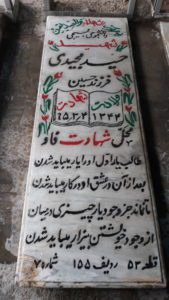 شهید
حمید مجیدی
فرزند حسین
ولادت
شهادت
۱۳۴۴
۶۵,۲,۴
محل شهادت فاو
طالب یار اول او را یار میباید شدن
بعد از آن در عشق او در کار میباید شدن
تا نماند جز وجود یار چیزی در میان
از وجود خویشتن بیزار میباید شدن
قطعه ۵۳ ردیف ۱۵۵ شماره ۷